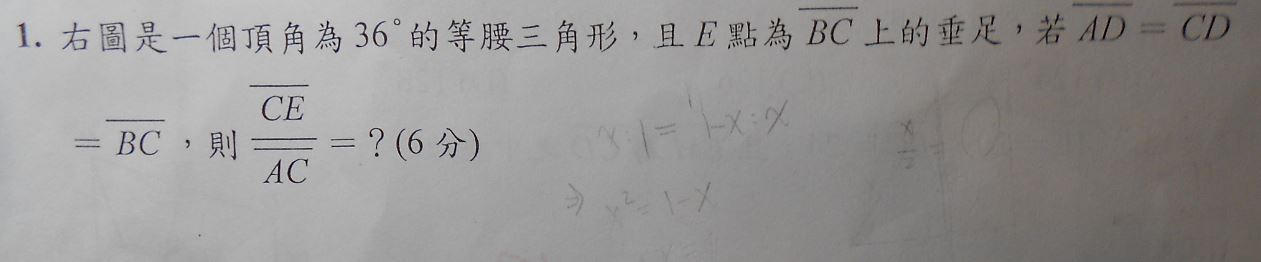 1. 右圖是一個頂角為 36°的等腰三角形，且 E 點為 BC 上的垂足，若 AD = CD
= BC ，則 CE/AC = ? (6 分)
x:1= 1-x:x
⇒ x²=1-x
x/2